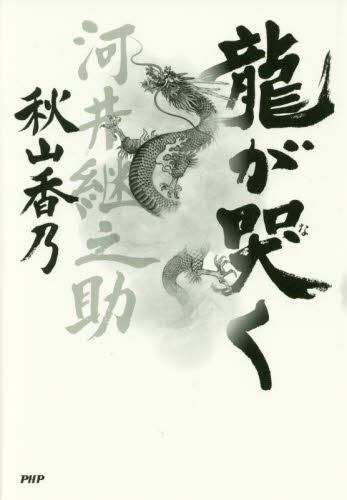 龍が哭く
な
河井継之助
秋山香乃
PHP